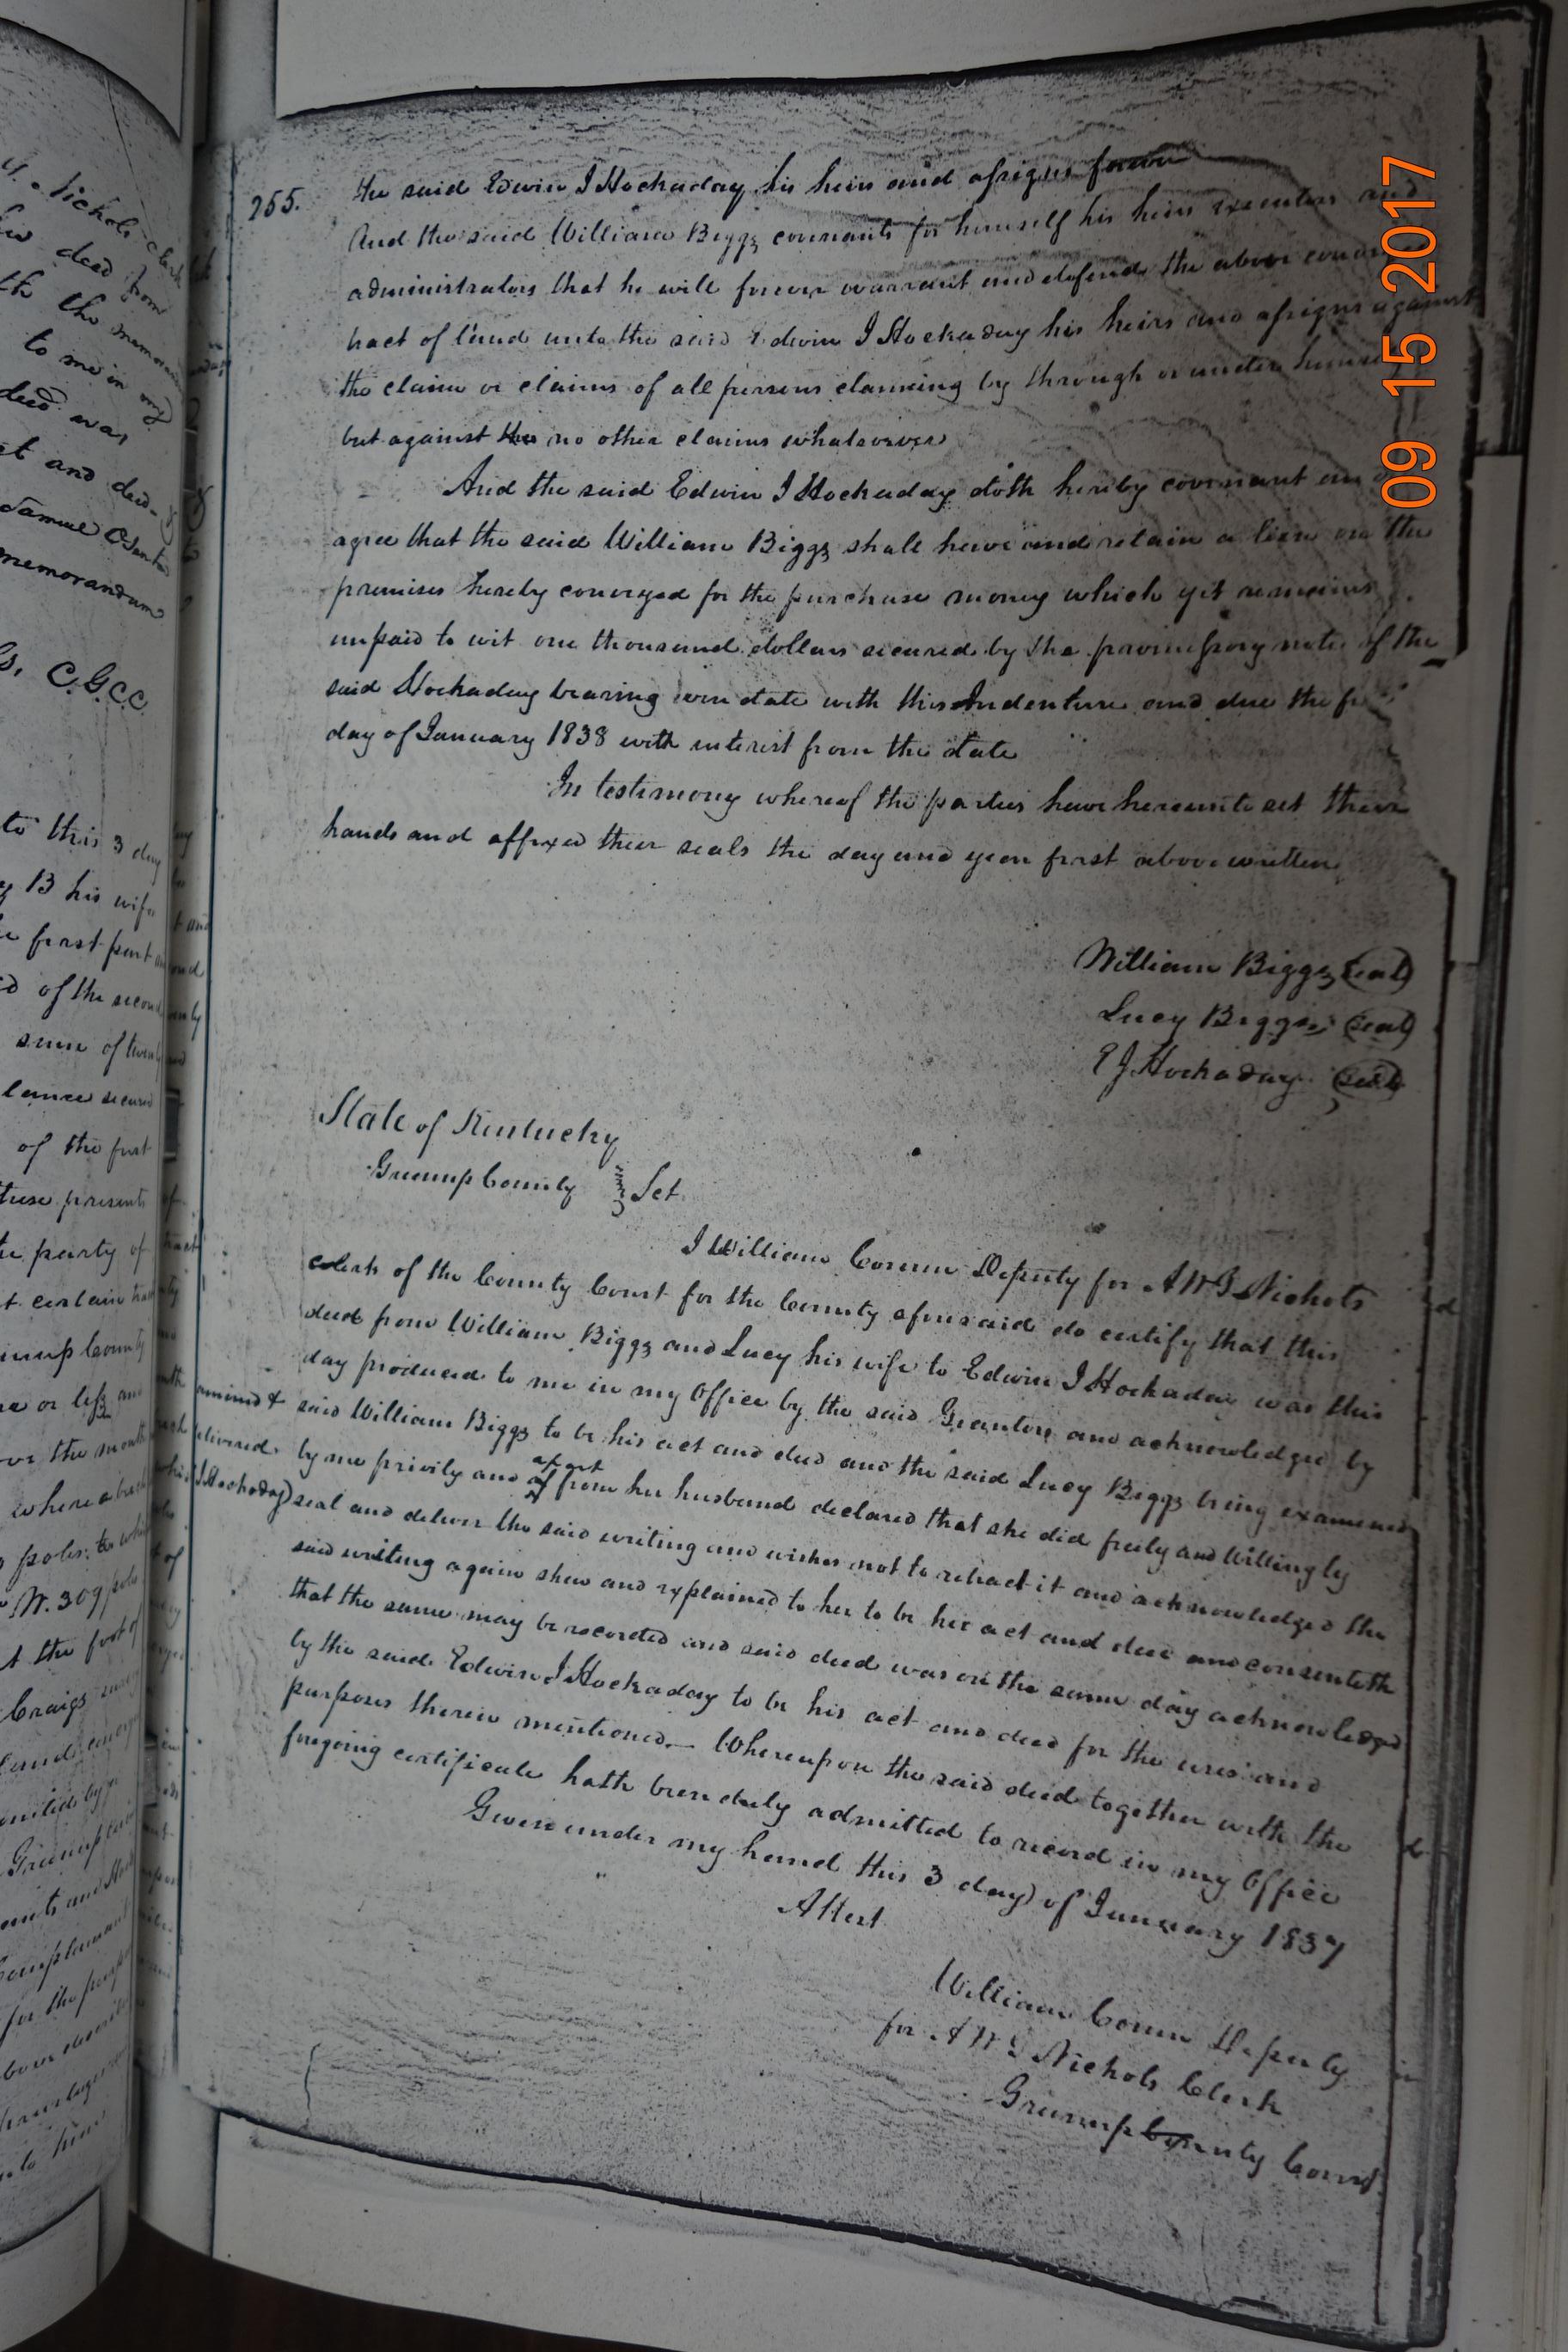 255.
the said Edwin J Hockaday his heirs and assigns forever
And the said William Biggs covenants for himself his heirs executors and
administrators that he will forever warrant and defend the above
tract of land unto the said Edwin J Hockaday his heirs and assigns against
the claim or claims of all persons claiming by through or under himself
but against no other claims whatsoever
And the said Edwin J Hockaday doth hereby covenant and
agree that the said William Biggs shall have and retain a lien on the
premises hereby conveyed for the purchase money which yet remains
unpaid to wit one thousand dollars secured by the promissory note of the
said Hockaday bearing even date with this Indenture and due the
day of January 1838 with interest from the date
In testimony whereof the parties have hereunto set their
hands and affixed their seals the day and year first above written
William Biggs (seal)
Lucy Biggs (seal)
E J Hockaday (seal)
State of Kentucky
Greenup County } Sct
I William Corum Deputy for A W G Nichols
clerk of the County Court for the County aforesaid do certify that this
deed from William Biggs and Lucy his wife to Edwin J Hockaday was this
day produced to me in my Office by the said Grantors and acknowledged by
said William Biggs to be his act and deed and the said Lucy Biggs being examined
by me privily and apart from her husband declared that she did freely and Willingly
seal and deliver the said writing and wishes not to retract it and acknowledged the
said writing again shew and explained to her to be her act and deed and consenteth
that the same may be recorded and said deed was on the same day acknowledged
by the said Edwin J Hockaday to be his act and deed for the uses and
purposes therein mentioned. — Whereupon the said deed together with the
foregoing certificate hath been duly admitted to record in my Office
Given under my hand this 3 day of January 1837
Attest
William Corum Deputy
for A W G Nichols Clerk
Greenup County Court
Hockaday)
Nichols clerk
deed from
th the
to me in my
deed was
and deed
Samuel
memorandum
C.G.C.C.
to this 3 day
B his wife
first part
of the second
sum of
secured
of the first
these presents
the party of
t certain
County
or less
the month
where a
poles to
W. 309 poles
t the foot of
Craigs
Greenup
for the
to him
09 15 2017